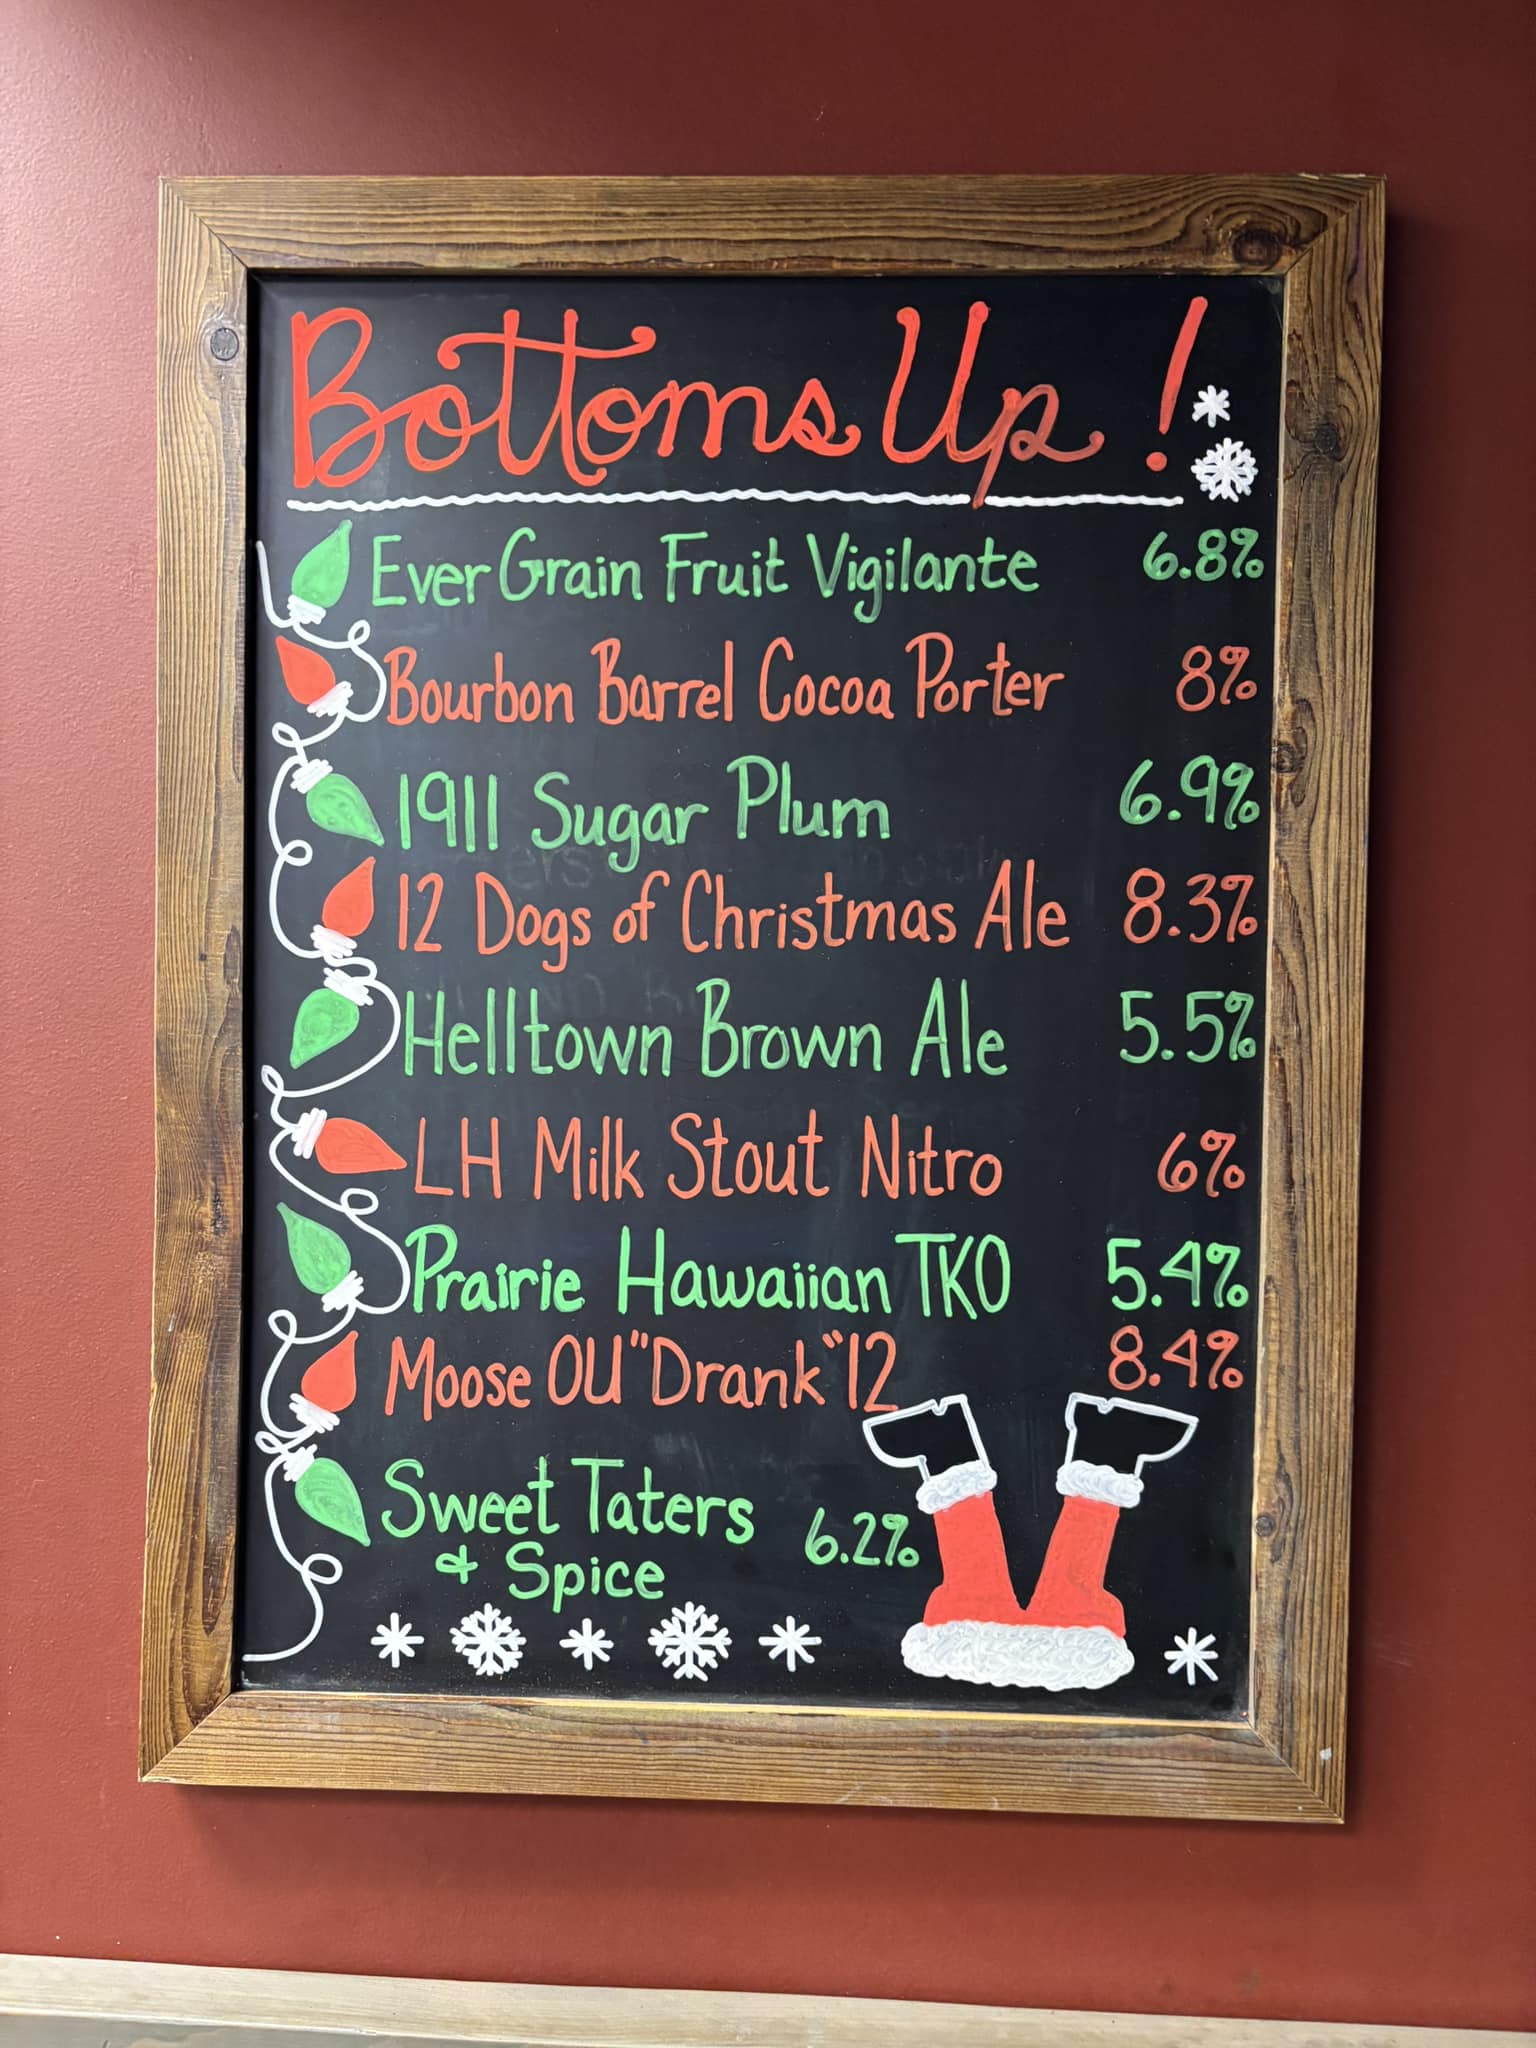 Bottoms Up!
Ever Grain Fruit Vigilante 6.8%
Bourbon Barrel Cocoa Porter 8%
1911 Sugar Plum 6.9%
12 Dogs of Christmas Ale 8.3%
Helltown Brown Ale 5.5%
LH Milk Stout Nitro 6%
Prairie Hawaiian TKO 5.4%
Moose OU "Drank" 12 8.4%
Sweet Taters
& Spice 6.2%